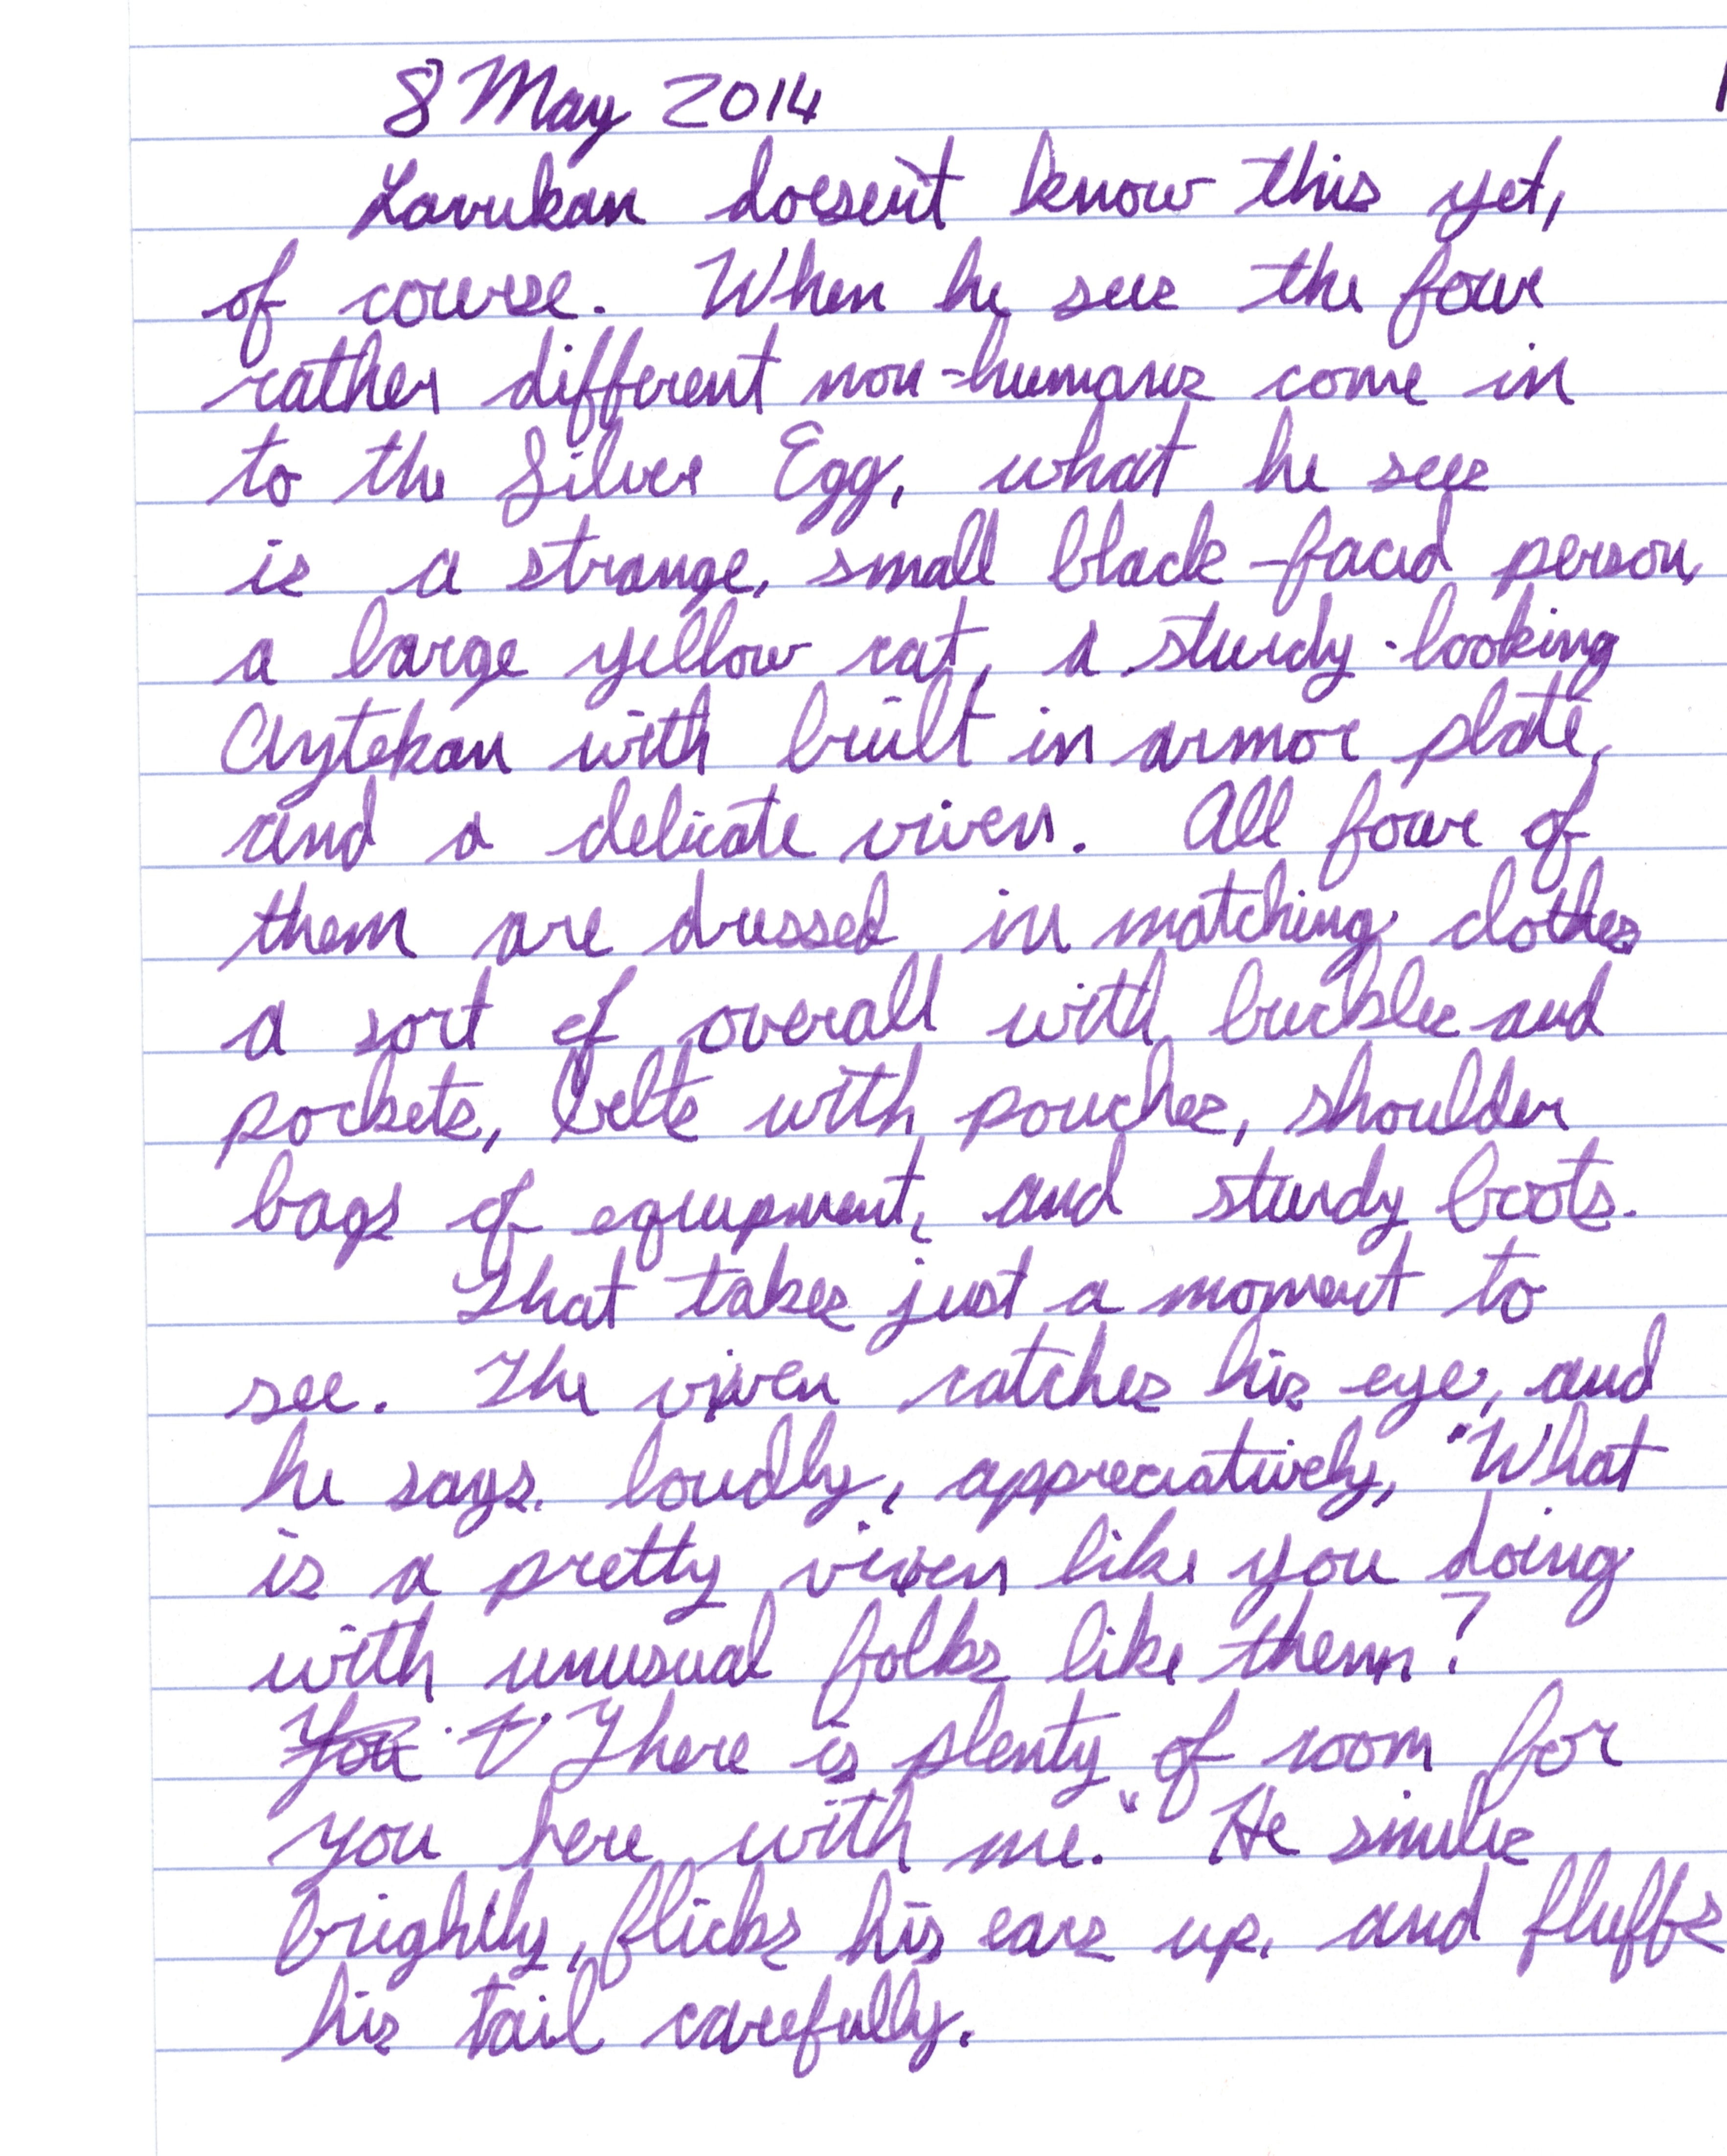 8 May 2014
Lavukan doesn't know this yet,
of course. When he sees the four
rather different non-humans come in
to the Silver Egg, what he sees
is a strange, small black-faced person,
a large yellow cat, a sturdy-looking
Aytekan with built in armor plate,
and a delicate vixen. All four of
them are dressed in matching clothes
a sort of overall with buckles and
pockets, belts with pouches, shoulder
bags of equipment, and sturdy boots.
That takes just a moment to
see. The vixen catches his eye, and
he says, loudly, appreciatively, "What
is a pretty vixen like you doing
with unusual folks like them?
You There is plenty of room for
you here with me." He smiles
brightly, flicks his ears up, and fluffs
his tail carefully.